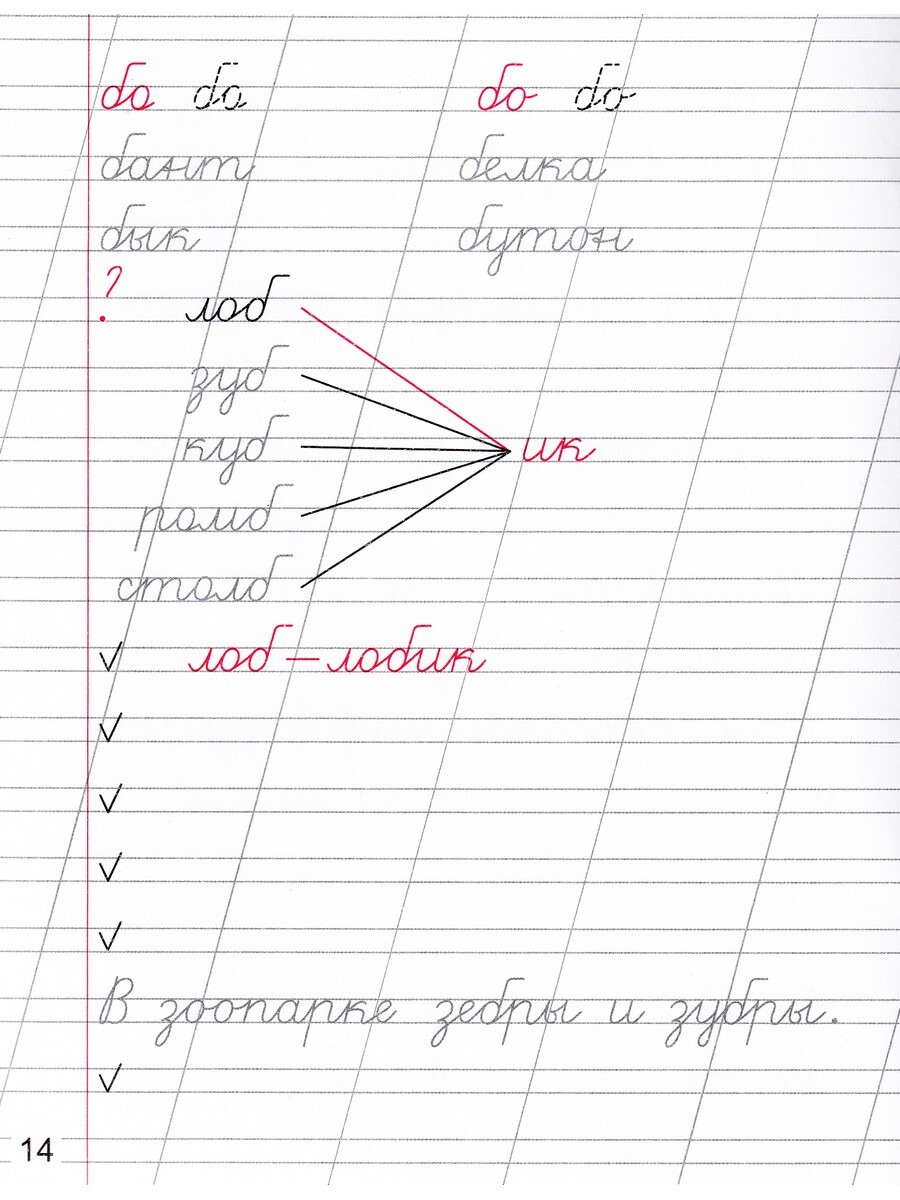 ба ба бо бо
бант белка
бык бутон
? лоб
зуб
куб ик
ромб
столб
✓ лоб – лобик
✓
✓
✓
✓
В зоопарке зебры и зубры.
✓
14